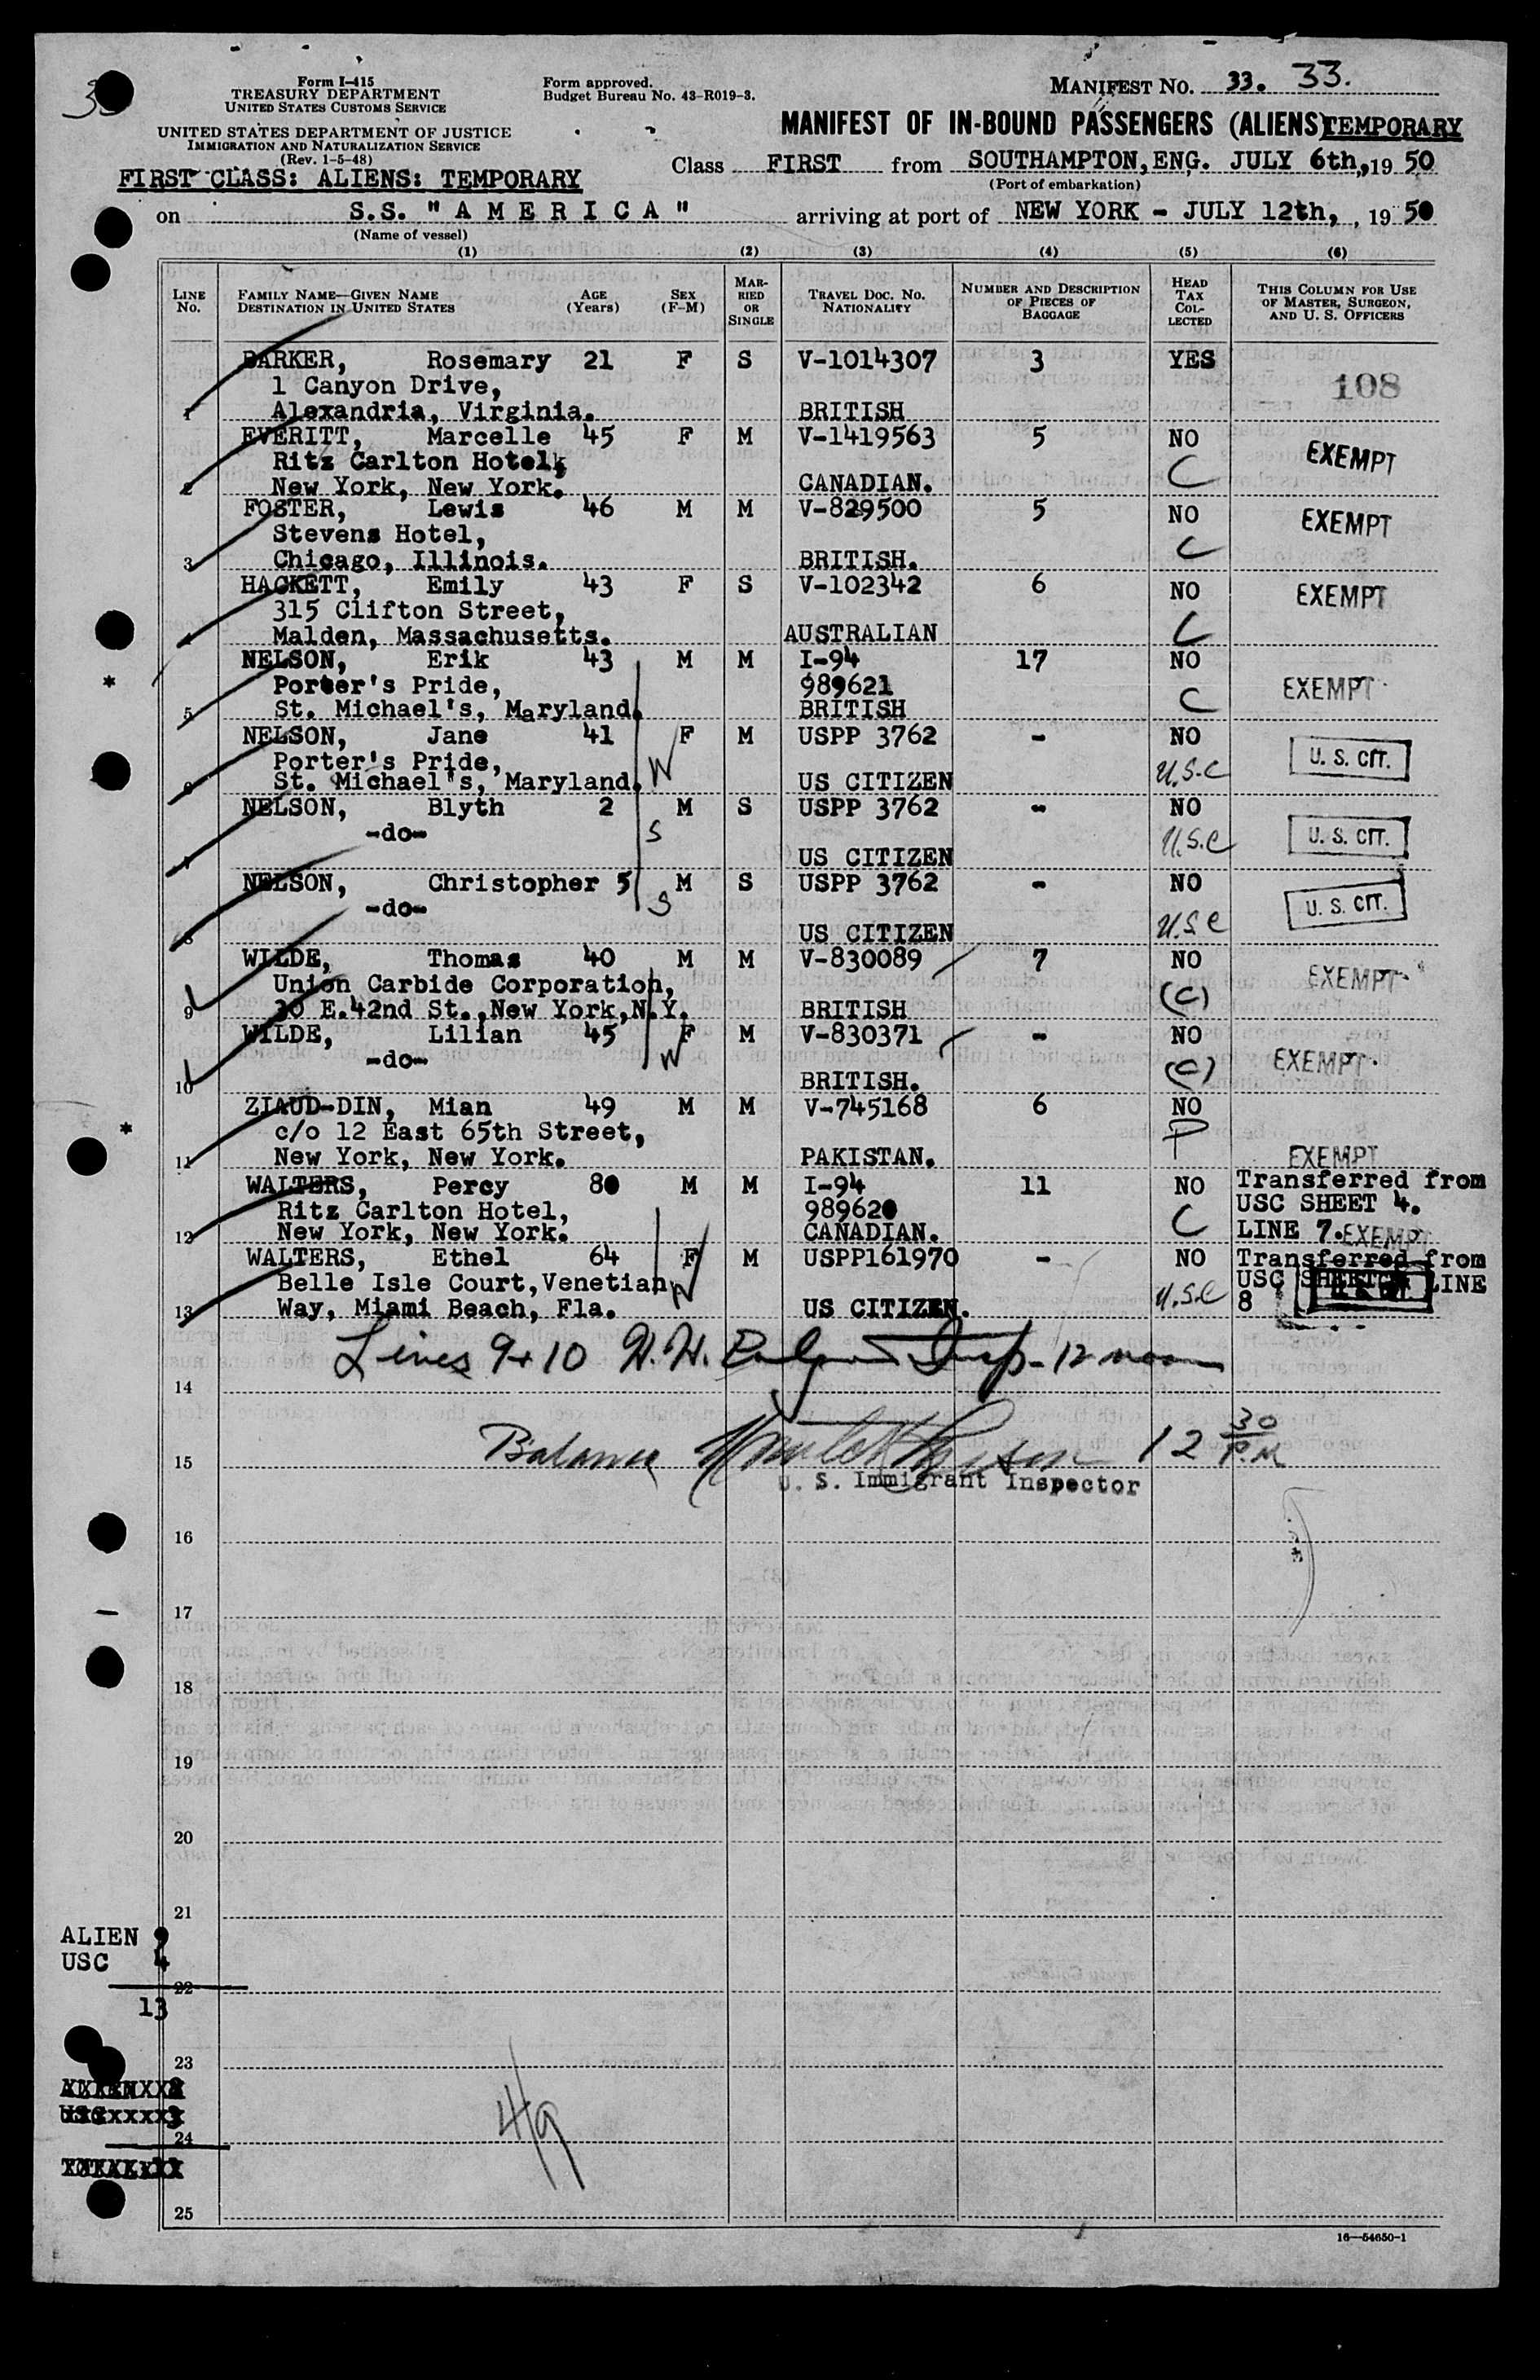 33
Form I-415
TREASURY DEPARTMENT
UNITED STATES CUSTOMS SERVICE
UNITED STATES DEPARTMENT OF JUSTICE
IMMIGRATION AND NATURALIZATION SERVICE
(Rev. 1-5-48)
Form approved.
Budget Bureau No. 43-R019-3.
MANIFEST NO. 33. 33.
MANIFEST OF IN-BOUND PASSENGERS (ALIENS) TEMPORARY
FIRST CLASS: ALIENS: TEMPORARY
Class FIRST from SOUTHAMPTON, ENG. JULY 6th, ,19 50
(Port of embarkation)
on S.S. "A M E R I C A" arriving at port of NEW YORK - JULY 12th, , 19 50
(Name of vessel)
(1) (2) (3) (4) (5) (6)
LINE No. FAMILY NAME—GIVEN NAME DESTINATION IN UNITED STATES AGE (Years) SEX (F-M) MARRIED OR SINGLE TRAVEL DOC. NO. NATIONALITY NUMBER AND DESCRIPTION OF PIECES OF BAGGAGE HEAD TAX COLLECTED THIS COLUMN FOR USE OF MASTER, SURGEON, AND U. S. OFFICERS
BARKER, Rosemary 21 F S V-1014307 3 YES
1 Canyon Drive, 108
1 Alexandria, Virginia. BRITISH
EVERITT, Marcelle 45 F M V-1419563 5 NO
Ritz Carlton Hotel, C EXEMPT
2 New York, New York. CANADIAN.
FOSTER, Lewis 46 M M V-829500 5 NO EXEMPT
Stevens Hotel, C
3 Chicago, Illinois. BRITISH.
HACKETT, Emily 43 F S V-102342 6 NO EXEMPT
315 Clifton Street, C
4 Malden, Massachusetts. AUSTRALIAN
NELSON, Erik 43 M M I-94 17 NO
Porter's Pride, 989621 C EXEMPT
5 St. Michael's, Maryland. BRITISH
NELSON, Jane 41 F M USPP 3762 - NO
Porter's Pride, W U.S.C U. S. CIT.
6 St. Michael's, Maryland. US CITIZEN
NELSON, Blyth 2 M S USPP 3762 - NO
-do- S U.S.C U. S. CIT.
7 US CITIZEN
NELSON, Christopher 5 M S USPP 3762 - NO
-do- S U.S.C U. S. CIT.
8 US CITIZEN
WILDE, Thomas 40 M M V-830089 7 NO
Union Carbide Corporation, (C) EXEMPT
9 30 E.42nd St.,New York,N.Y. BRITISH
WILDE, Lilian 45 F M V-830371 - NO
-do- W (C) EXEMPT
10 BRITISH.
ZIAUD-DIN, Mian 49 M M V-745168 6 NO
c/o 12 East 65th Street, P
11 New York, New York. PAKISTAN. EXEMPT
WALTERS, Percy 80 M M I-94 11 NO Transferred from
Ritz Carlton Hotel, 989620 C USC SHEET 4.
12 New York, New York. CANADIAN. LINE 7. EXEMPT
WALTERS, Ethel 64 F M USPP161970 - NO Transferred from
Belle Isle Court,Venetian W U.S.C USC SHEET LINE
13 Way, Miami Beach, Fla. US CITIZEN. 8
Lines 9+10 H.H. Insp- 12 noon
14
Balance 12 30 P.M
15
U. S. Immigrant Inspector
16
17
18
19
20
21
ALIEN 9
USC 4
22
13
23
24
4/9
25
16—54650-1